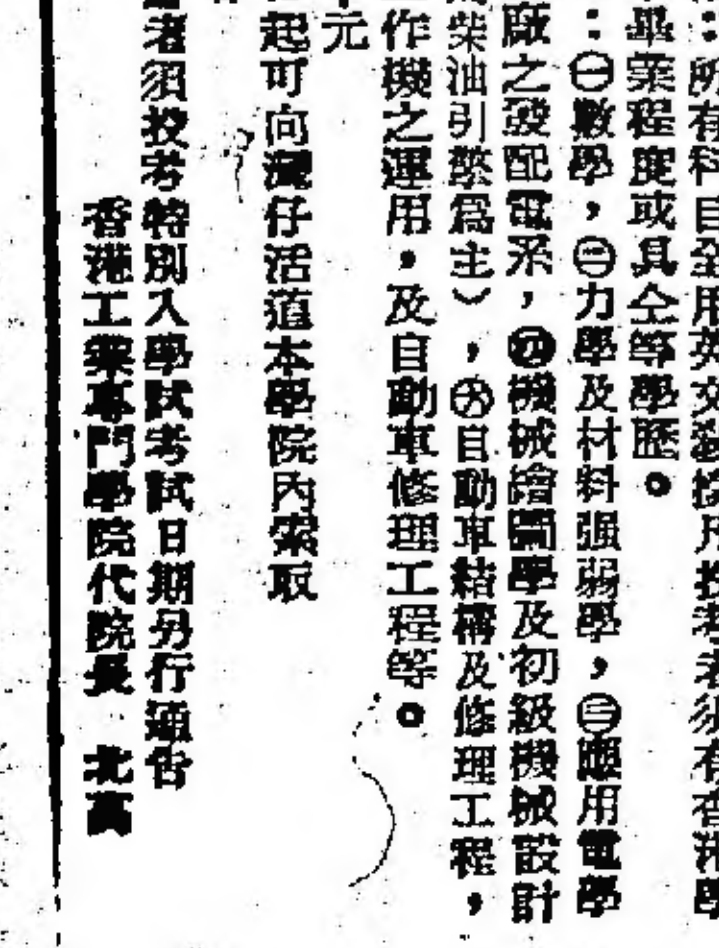 ：所有科目全用英文教授凡投考者須有香港學
畢業程度或具仝等學歷。
：㊀數學，㊁力學及材料强弱學，㊂應用電學
廠之發配電系，㊃機械繪圖學及初級機械設計
柴油引擎爲主），㊅自動車結構及修理工程，
作機之運用，及自動車修理工程等。
元
起可向灣仔活道本學院內索取
者須投考特別入學試考試日期另行通告
香港工業專門學院代院長　北高